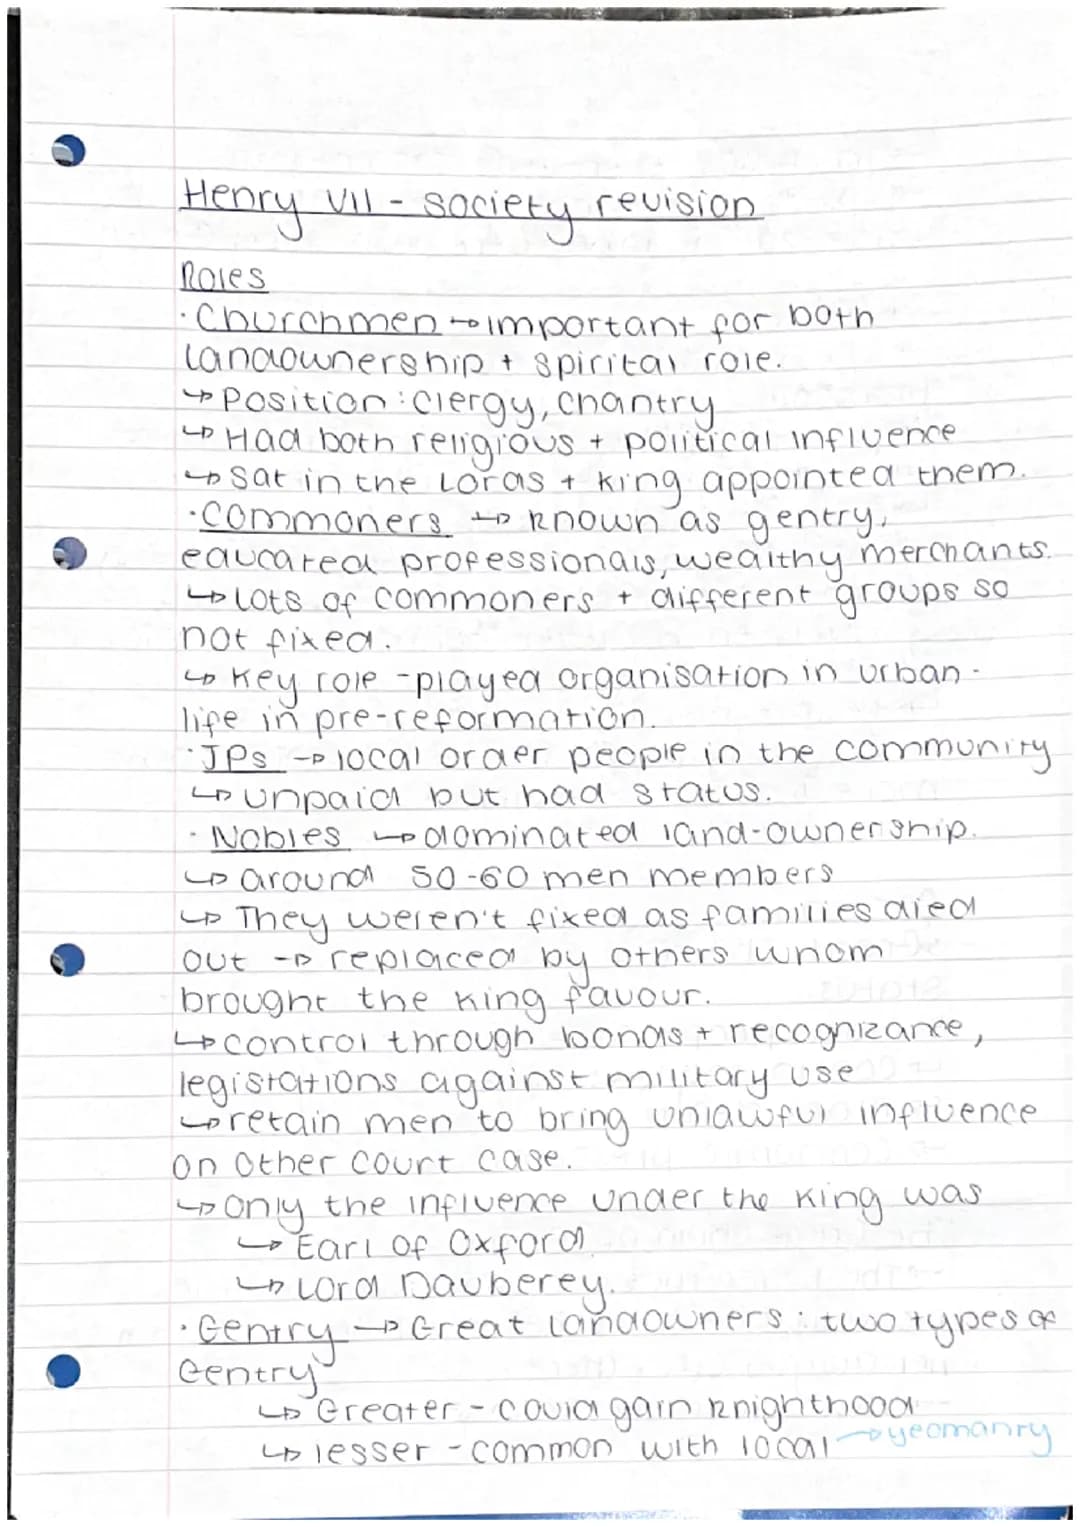 Henry VII - society revision
Roles
· Churchmen → important for both
landownership + spirital role.
↳ Position : clergy, chantry
↳ Had both religious + political influence
↳ Sat in the Lords + king appointed them.
· Commoners ↳ known as gentry,
educated professionals, wealthy merchants.
↳ lots of commoners + different groups so
not fixed.
↳ Key role - played organisation in urban -
life in pre-reformation.
· JPs → local order people in the community
↳ unpaid but had status.
· Nobles ↳ dominated land-ownership.
↳ around 50-60 men members
↳ They weren't fixed as families died
out → replaced by others whom
brought the king favour.
↳ control through bonds + recognizance,
legistations against military use
↳ retain men to bring unlawful influence
on other court case.
↳ Only the influence under the king was
↳ Earl of Oxford
↳ Lord Dauberey.
· Gentry → Great landowners : two types of
Gentry
↳ Greater - could gain knighthood
↳ lesser - common with local → yeomanry